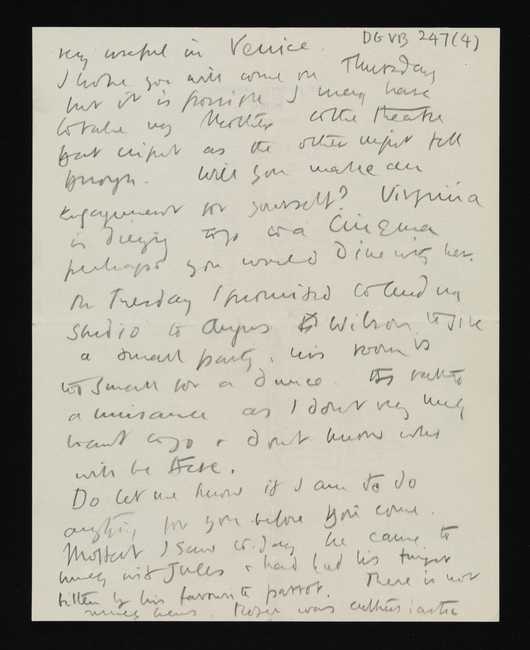 DGVB 247(4)
very useful in Venice.
I hope you will come on Thursday
but it is possible I may have
to take my Mother to the theatre
that night as the other night fell
through. Will you make an
engagement for yourself? Virginia
is dieing to go to a Cinema
perhaps you would Dine with her.
On Tuesday I promised to lend my
studio to Angus & Wilson to give
a small party, his room is
too small for a dance. Its rather
a nuisance as I dont very much
want to go & dont know who
will be there.
Do let me know if I am to do
anything for you before you come.
Moffat I saw to-day he came to
with Jules & had had his finger
bitten by his favourite parrot. There is not
much news. Roger was enthusiastic